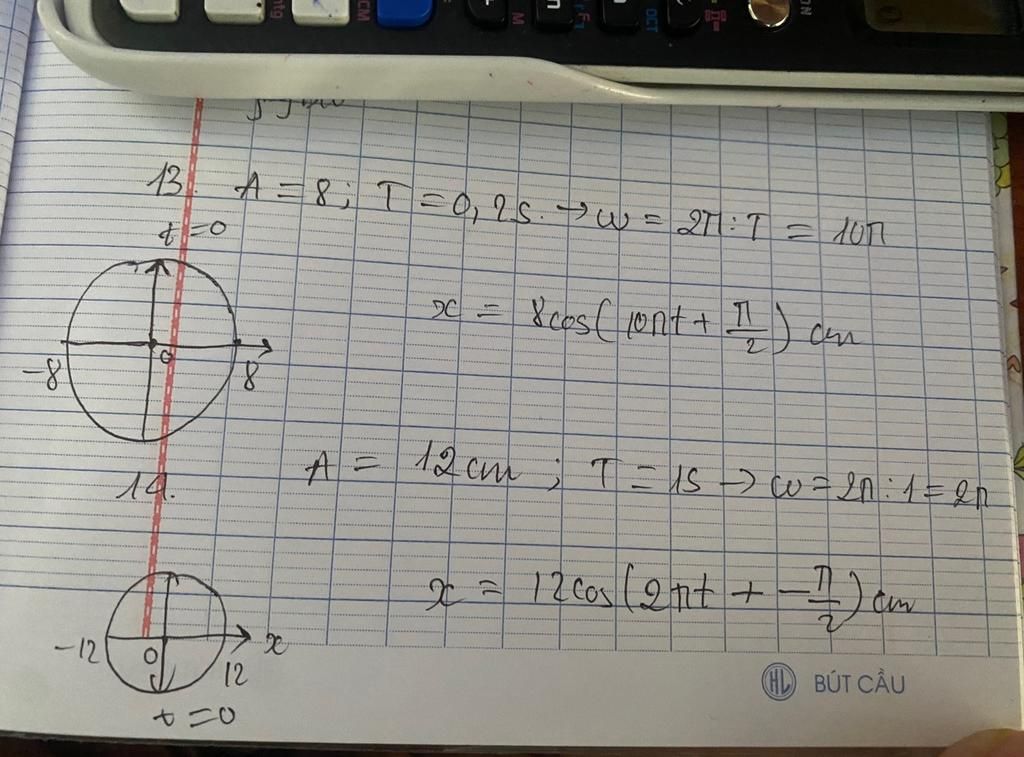 13. A = 8; T = 0,2s. → ω = 2π : T = 10π
t = 0
x = 8cos(10πt + π/2) cm
-8 0 8
14. A = 12cm; T = 1s → ω = 2π : 1 = 2π
x = 12cos(2πt + -π/2) cm
-12 0 12 x
t = 0
HL BÚT CẦU